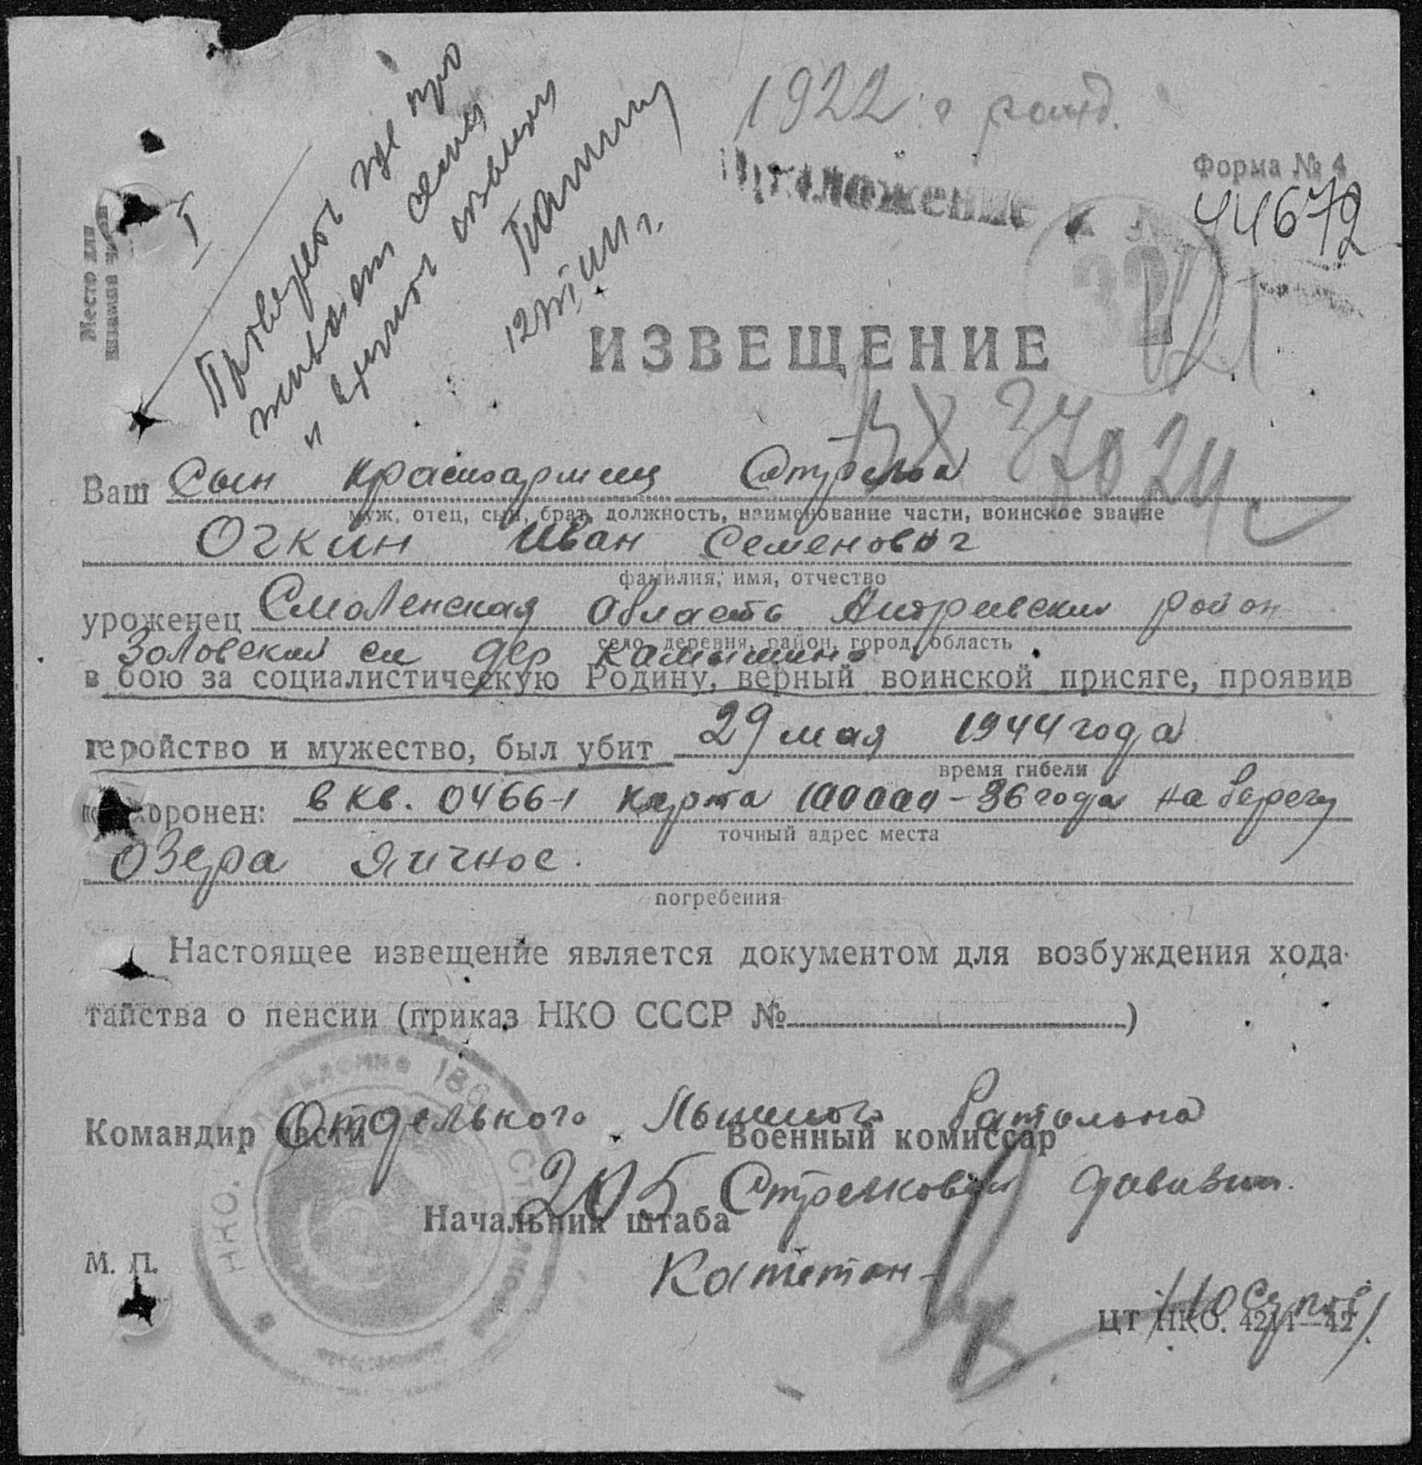 1922 г рожд.
Форма № 4
Приложение к №
44672
I
Проверить где про
живает семья
и вручить извещен
12/VII 44 г.
Место для
штампа части
32
ИЗВЕЩЕНИЕ
Вх 37024
Ваш Сын красноармеец Стрелок
муж, отец, сын, брат, должность, наименование части, воинское звание
Очкин Иван Семенович
фамилия, имя, отчество
уроженец Смоленская область Андреевский район
село, деревня, район, город, область
Золовский с/с дер Камышино
в бою за социалистическую Родину, верный воинской присяге, проявив
геройство и мужество, был убит 29 мая 1944 года
время гибели
похоронен: в кв. 0466-1 карта 100000-36 года на берегу
точный адрес места
озера Яичное.
погребения
Настоящее извещение является документом для возбуждения хода-
тайства о пенсии (приказ НКО СССР № )
Командир части Отдельного Лыжного Батальона
Военный комиссар
205 Стрелковой дивизии
Начальник штаба
Капитан
М. П.
НКО.
ЦТ НКО. 4211—42